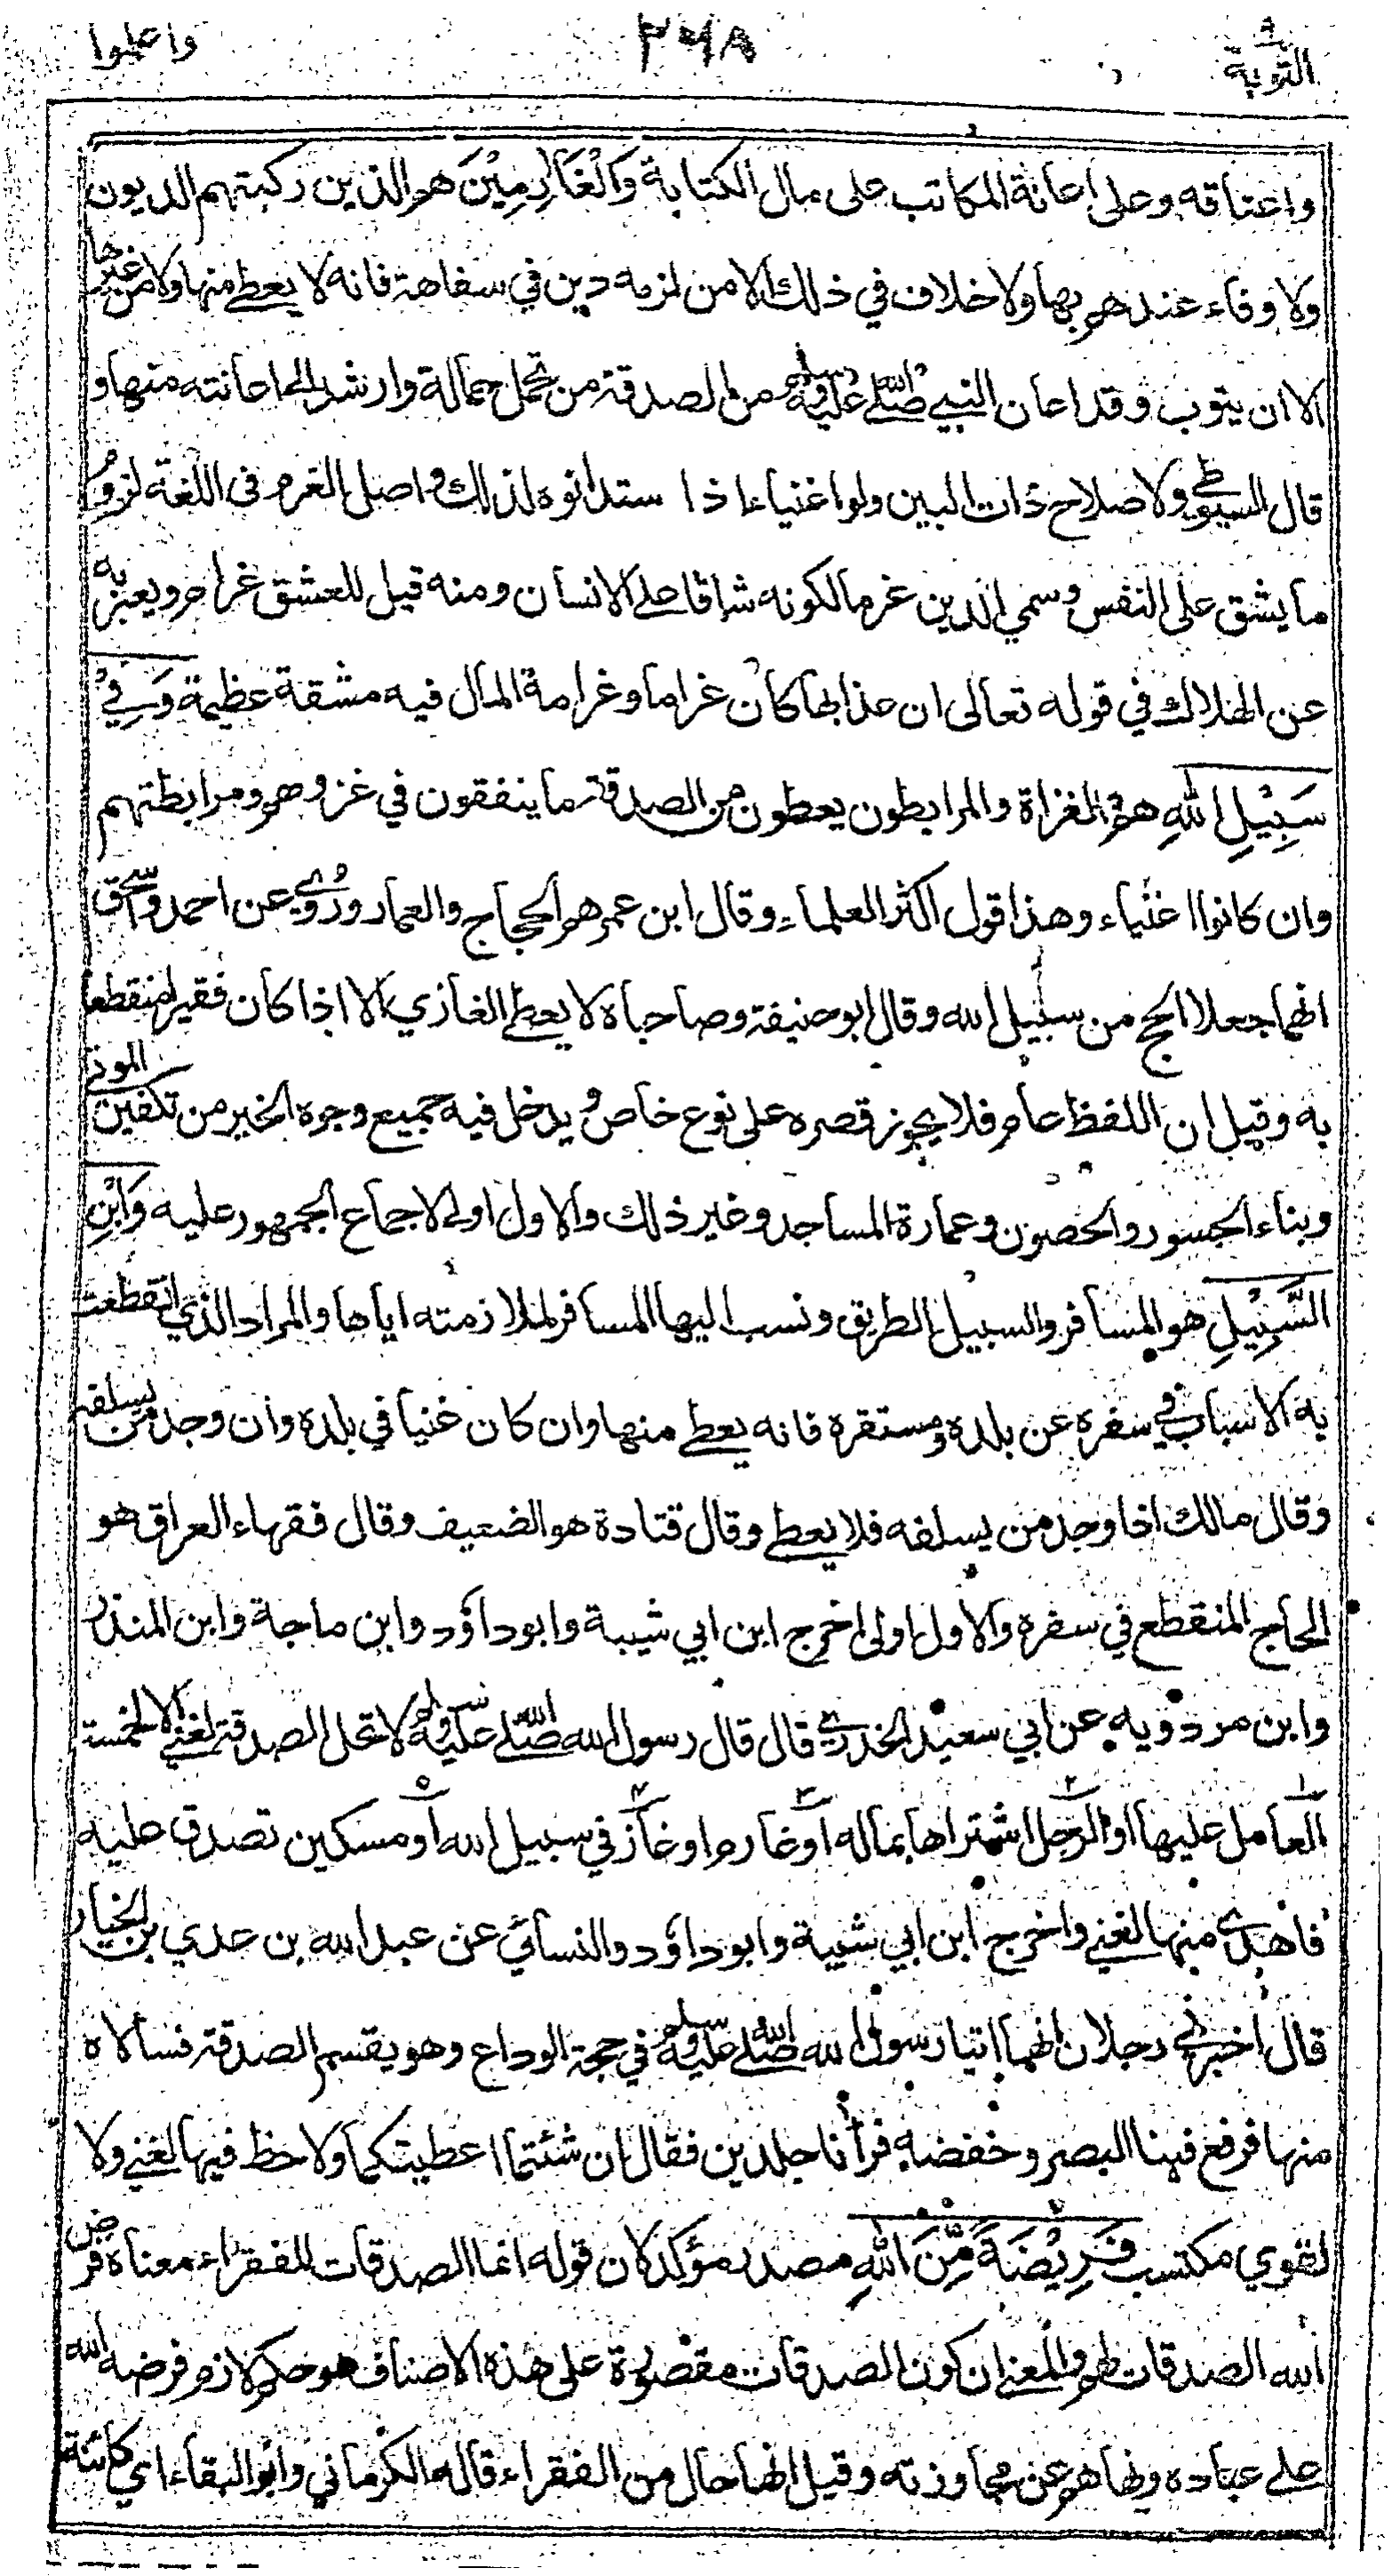 واعلموا ٣٦٨ التوبة ٩
واعتاقه وعلى اعانة المكاتب على مال الكتابة وَالْغَارِمِيْنَ هم الذين ركبتهم الديون
ولا وفاء عندهم بها ولا خلاف في ذلك الا من لزمه دين في سفاهة فانه لا يعطى منها ولا من غيرها
الا ان يتوب وقد اعان النبي صلى الله عليه وسلم من الصدقة من تحمل حمالة وارشد الى اعانته منها و
قال السيوطي ولاصلاح ذات البين ولو اغنياء اذا ستدانوه لذلك واصل الغرم في اللغة لزوم
ما يشق على النفس وسمي الدين غرما لكونه شاقا على الانسان ومنه قيل للعشق غرام ويعبر به
عن الهلاك في قوله تعالى ان عذابها كان غراما وغرامة المال فيه مشقة عظيمة وَفِيْ
سَبِيْلِ اللهِ هم الغزاة والمرابطون يعطون من الصدقة ما ينفقون في غزوهم ومرابطتهم
وان كانوا اغنياء وهذا قول اكثر العلماء وقال ابن عمر هم الحجاج والعمار ورُوي عن احمد واسحق
انهما جعلا الحج من سبيل الله وقال ابو حنيفة وصاحباه لا يعطى الغازي الا اذا كان فقيرا منقطعا
به وقيل ان اللفظ عام فلا يجوز قصره على نوع خاص ويدخل فيه جميع وجوه الخير من تكفين الموتى
وبناء الجسور والحصون وعمارة المساجد وغير ذلك والاول اولى لاجماع الجمهور عليه وَابْنِ
السَّبِيْلِ هو المسافر والسبيل الطريق ونسب اليها المسافر لملازمته اياها والمراد الذي انقطعت
به الاسباب في سفره عن بلده ومستقره فانه يعطى منها وان كان غنيا في بلده وان وجد من يسلفه
وقال مالك اذا وجد من يسلفه فلا يعطى وقال قتادة هو الضعيف وقال فقهاء العراق هو
الحاج المنقطع في سفره والاول اولى اخرج ابن ابي شيبة وابو داؤد وابن ماجة وابن المنذر
وابن مردويه عن ابي سعيد الخدري قال قال رسول الله صلى الله عليه وسلم لا تحل الصدقة لغني الا لخمسة
العامل عليها او الرجل اشتراها بماله او غارم او غاز في سبيل الله او مسكين تصدق عليه
فاهدى منها لغني واخرج ابن ابي شيبة وابو داؤد والنسائي عن عبد الله بن عدي بن الخيار
قال اخبرني رجلان انهما اتيا رسول الله صلى الله عليه وسلم في حجة الوداع وهو يقسم الصدقة فسألاه
منها فرفع فينا البصر وخفضه فرأنا جلدين فقال ان شئتما اعطيتكما ولا حظ فيها لغني ولا
لقوي مكتسب فَرِيْضَةً مِّنَ اللهِ مصدر مؤكد لان قوله انما الصدقات للفقراء معناه فرض
الله الصدقات لهم والمعنى ان كون الصدقات مقصورة على هذه الاصناف هو حكم لازم فرضه الله
على عباده ونهاهم عن مجاوزته وقيل انها حال من الفقراء قاله الكرماني وابو البقاء اي كائنة